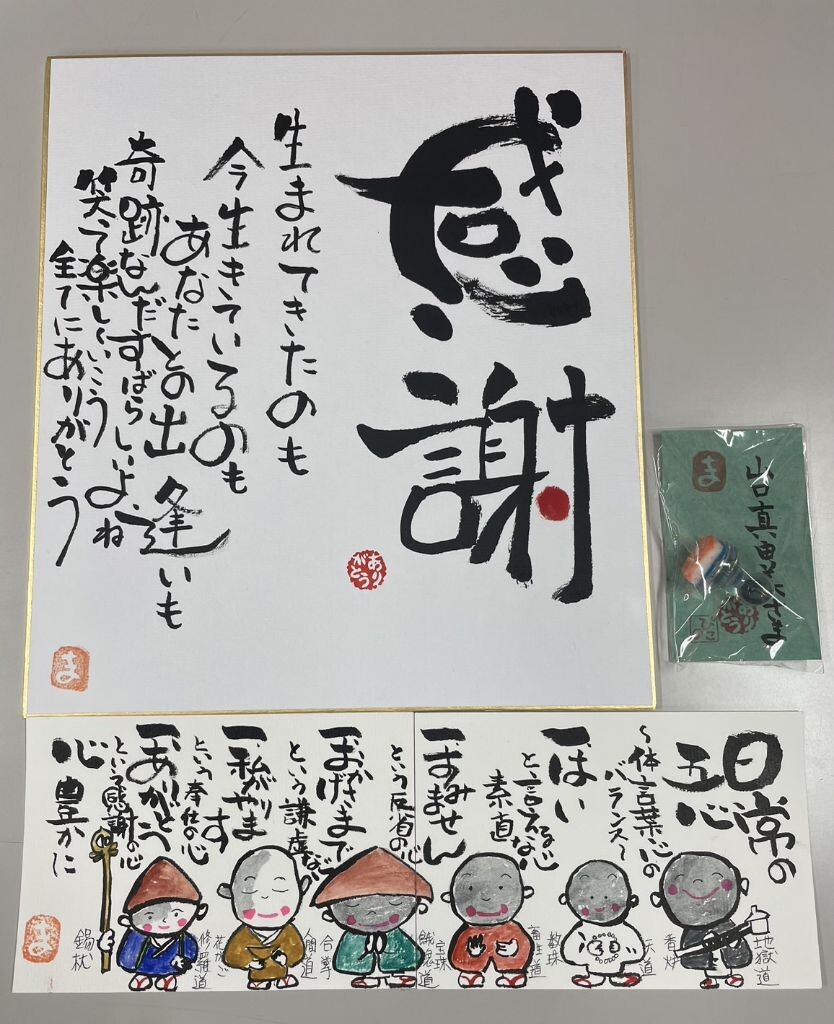 感謝
生まれてきたのも
今生きているのも
あなたとの出逢いも
奇跡なんだすばらしいよね
笑って楽しくいこう
全てにありがとう
ありがとう
ま
ま
山口真由
さま
ありがとう
日常の
五心
〜体言葉心の
バランス〜
一、はい
と言える
素直な心
一、すみません
という反省の心
一、おかげさまで
という謙虚な心
一、私がやります
という奉仕の心
一、ありがとう
という感謝の心
心豊かに
地獄道
香炉
天道
数珠
畜生道
宝珠
餓鬼道
合掌
人間道
花かご
修羅道
錫杖
ま